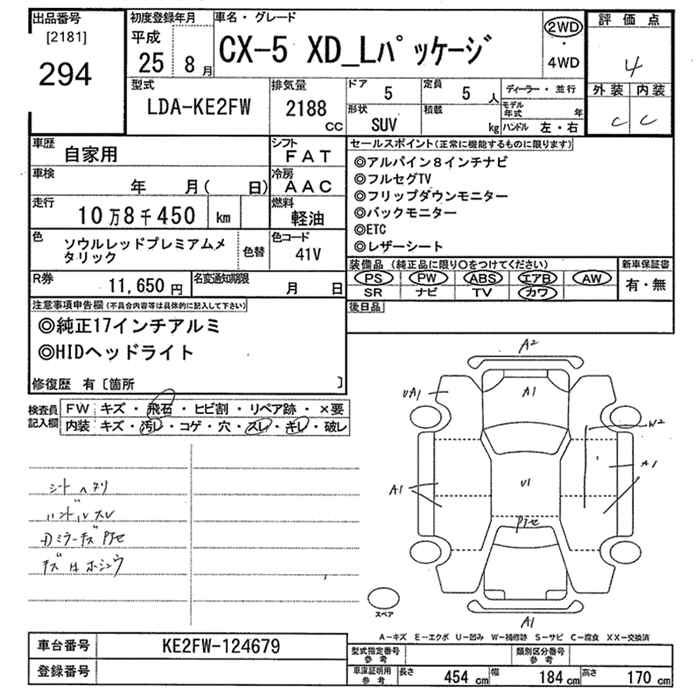 出品番号
[2181]
294
初度登録年月
平成
25 8月
車名・グレード
CX-5 XD_Lパッケージ
2WD
・
4WD
評価点
4
外装 内装
C C
型式
LDA-KE2FW
排気量
2188
CC
ドア
5
定員
5 人
形状
SUV
積載
kg
ディーラー・並行
モデル年式 年
ハンドル 左・右
車歴
自家用
シフト
FAT
車検
年 月( 日)
冷房
AAC
走行
10万8千450 km
燃料
軽油
色
ソウルレッドプレミアムメタリック
色替
色コード
41V
R券
11,650円
名変通知期限
月 日
セールスポイント(正常に機能するものに限ります)
◎アルパイン8インチナビ
◎フルセグTV
◎フリップダウンモニター
◎バックモニター
◎ETC
◎レザーシート
装備品(純正品に限り○をつけてください)
PS PW ABS エアB AW
SR ナビ TV カワ
新車保証書
有・無
後日品
注意事項申告欄(不具合内容等は具体的に記入して下さい)
◎純正17インチアルミ
◎HIDヘッドライト
修復歴 有〔箇所 〕
検査員記入欄
FW キズ・飛石・ヒビ割・リペア跡・×要
内装 キズ・汚レ・コゲ・穴・スレ・キレ・破レ
シートヘタリ
ハンドルスレ
カミラーキズPグセ
キズ は ホシュウ
A2
UA1
A1
W2
A1
A1
U1
A1
スペア
A-キズ E-エクボ U-凹み W-補修跡 S-サビ C-腐食 XX-交換済
車台番号
KE2FW-124679
登録番号
型式指定番号参考
類別区分番号参考
車庫証明用参考
長さ 454 cm
幅 184 cm
高さ 170 cm